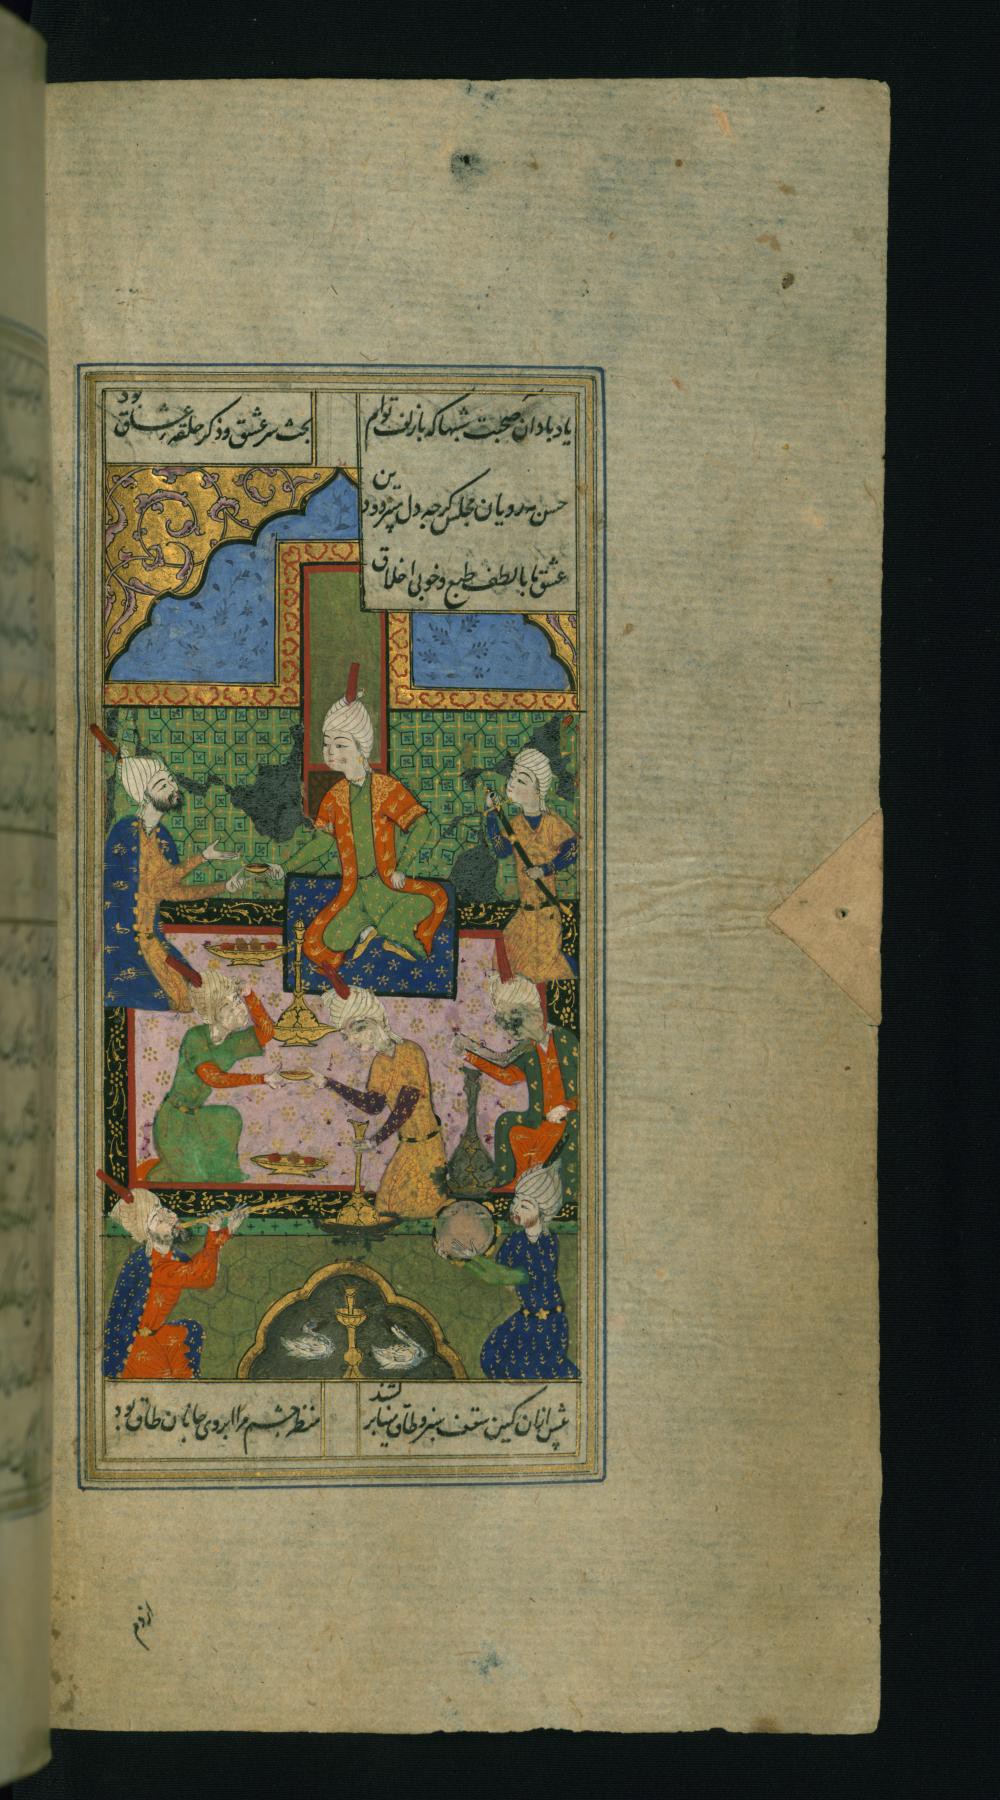 یاد باد آن صحبت شبها که با زلف توام
بحث سر عشق و ذکر حلقه عشاق بود
حسن مه رویان مجلس گرچه دل میبرد و دین
عشق ما با لطف طبع و خوبی اخلاق
پیش ازان کین سقف سبز و طاق مینا برکشند
منظر چشم مرا ابروی جانان طاق بود
از دم